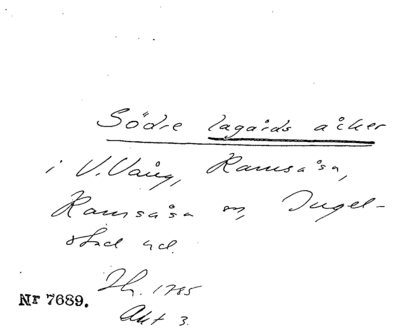 Södre lagårds åcker
i V. Vång, Ramsåsa,
Ramsåsa sn, Ingel-
stad hd.
Sk. 1785
Nr 7689.
Akt 3.